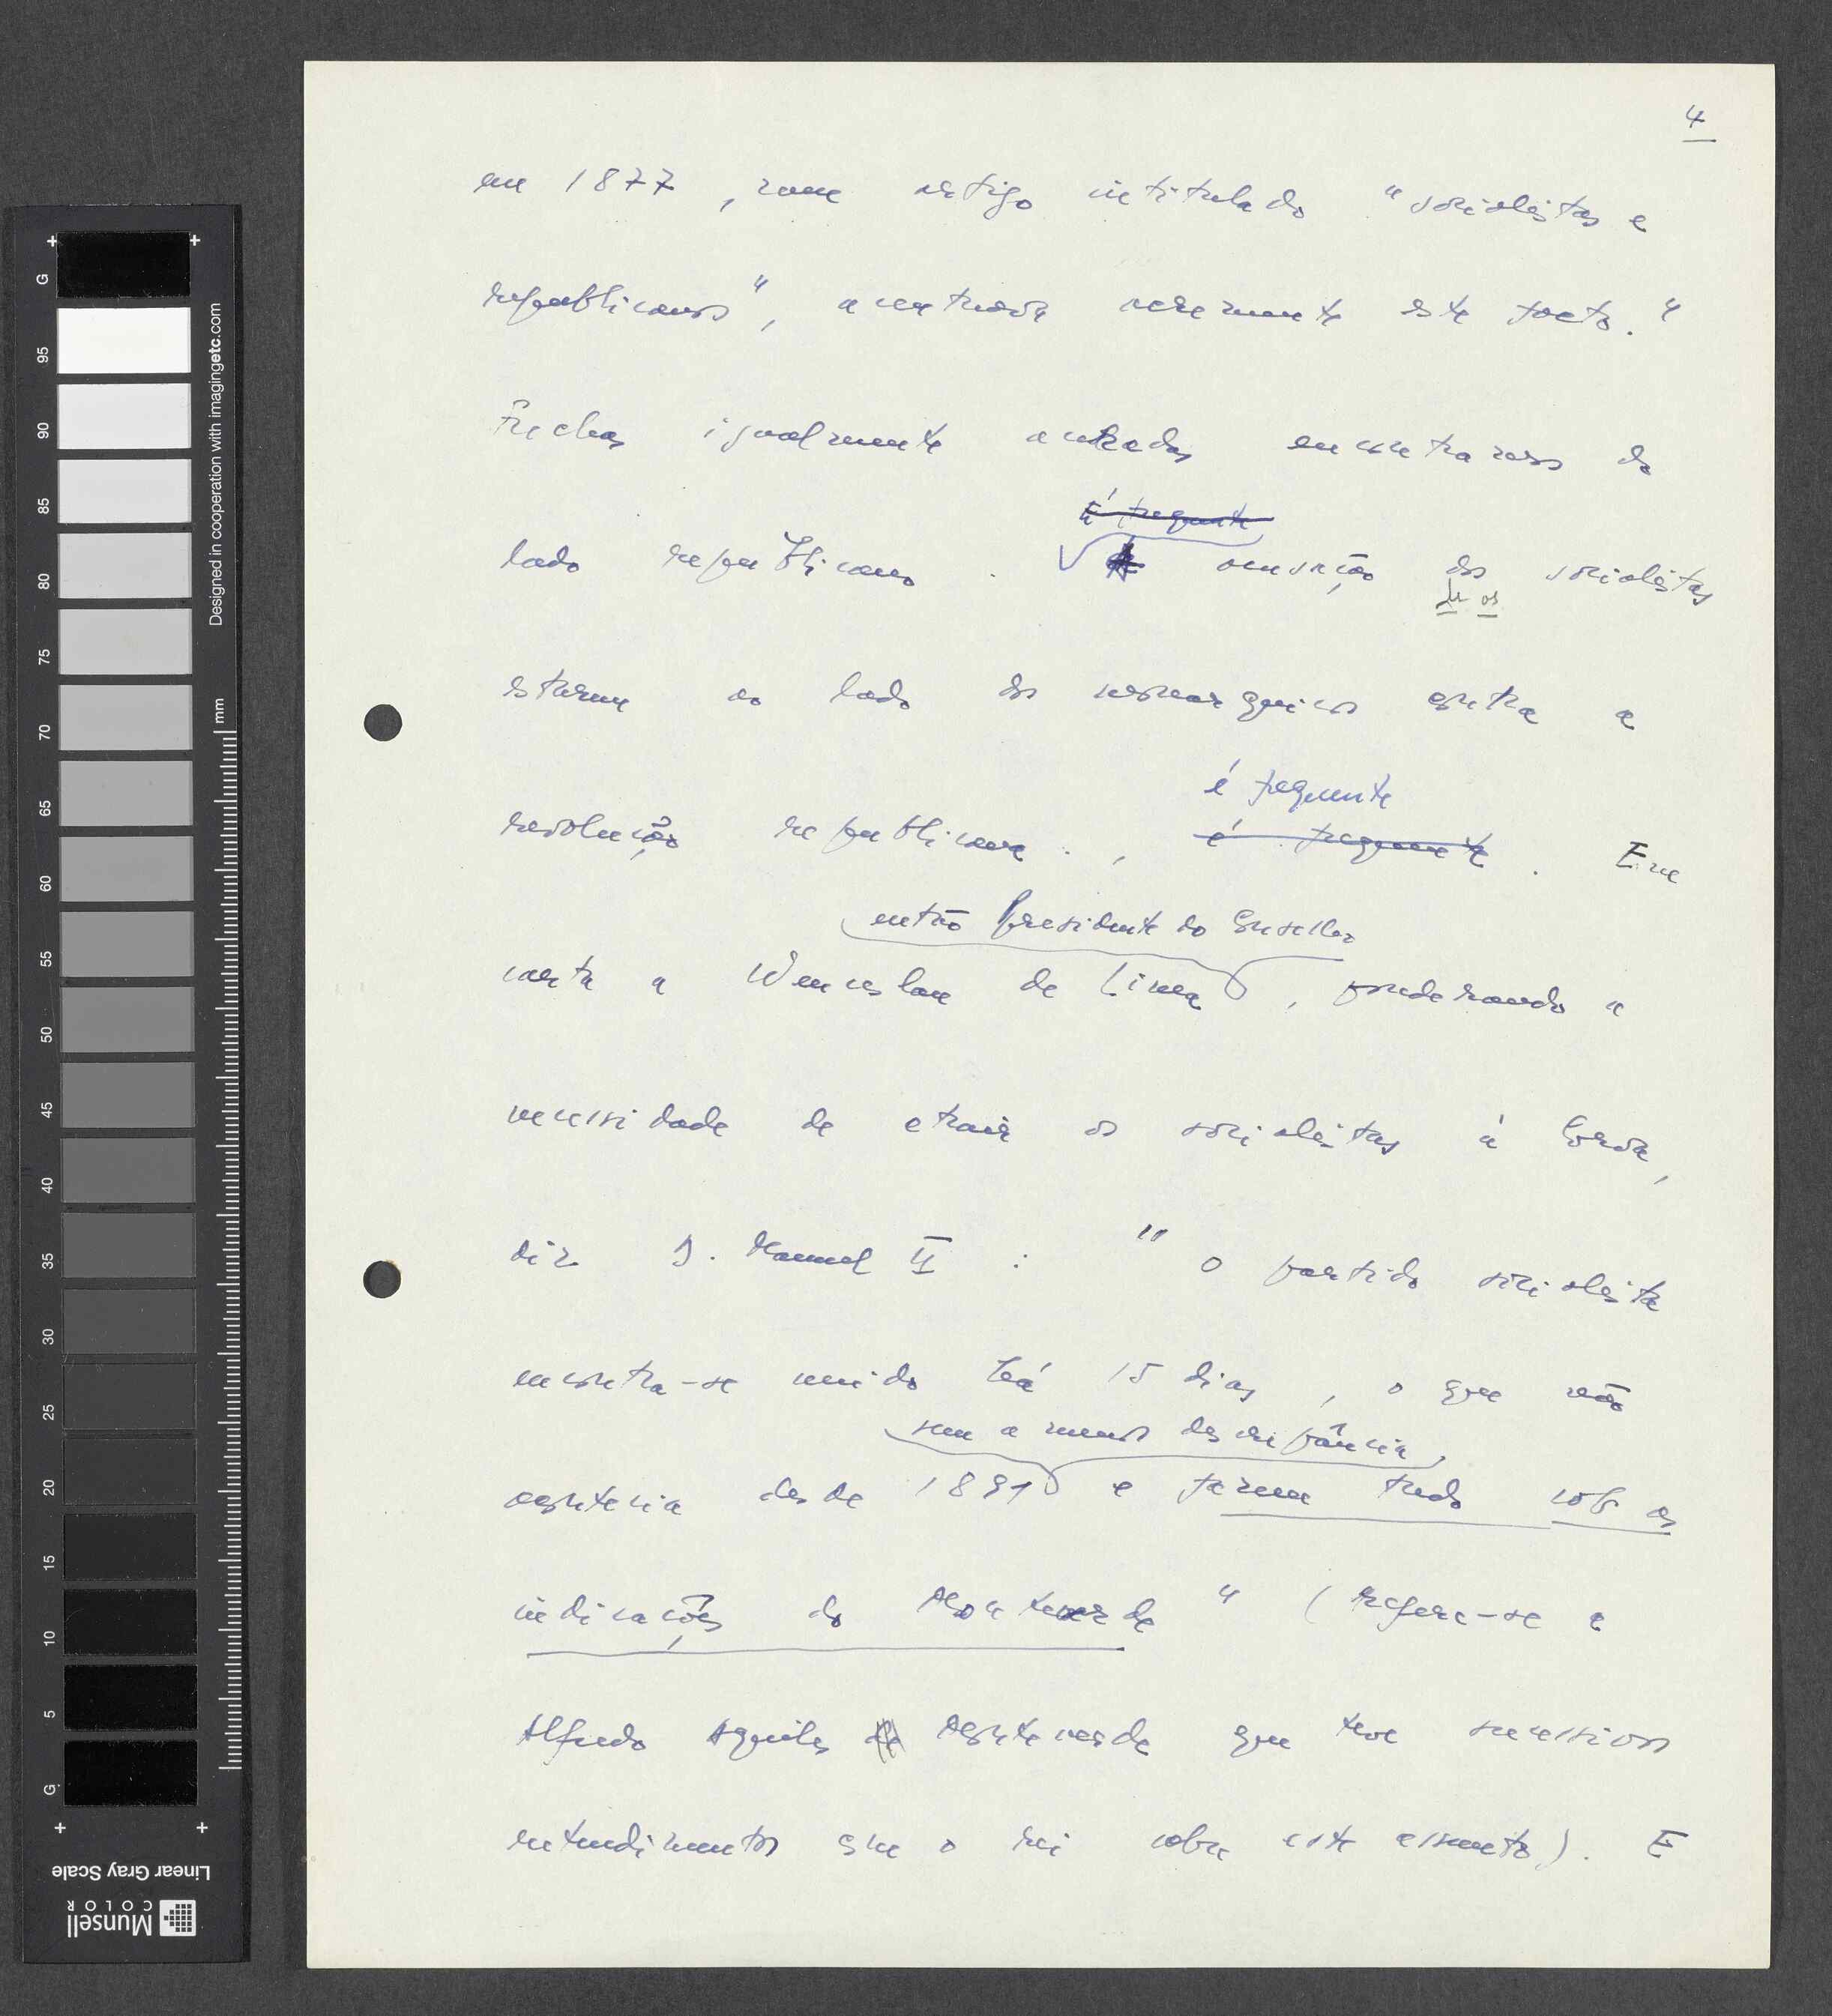 4
em 1877, num artigo intitulado "socialistas e
republicanos", acentuava acremente este facto."
Frechas igualmente aceradas encontramos do
É frequente
lado republicano. A acusação dos socialistas
de os
estarem ao lado dos monarquicos contra a
é frequente
revolução republicana., é frequente. Em
então Presidente do Conselho
carta a Wenceslau de Lima, ponderando a
necessidade de atrair os socialistas à Coroa,
diz D. Manuel II : "o partido socialista
encontra-se unido há 15 dias, o que não
sem a menor discrepância,
acontecia desde 1891 e fazem tudo sob as
indicações do Monteverde" (Refere-se a
Alfredo Aquiles Monteverde que teve sucessivos
entendimentos com o rei sobre este assunto). E
Designed in cooperation with imagingetc.com
mm
G
95
90
85
80
75
70
65
60
55
50
45
40
35
30
25
20
15
10
5
G
Linear Gray Scale
Munsell
COLOR